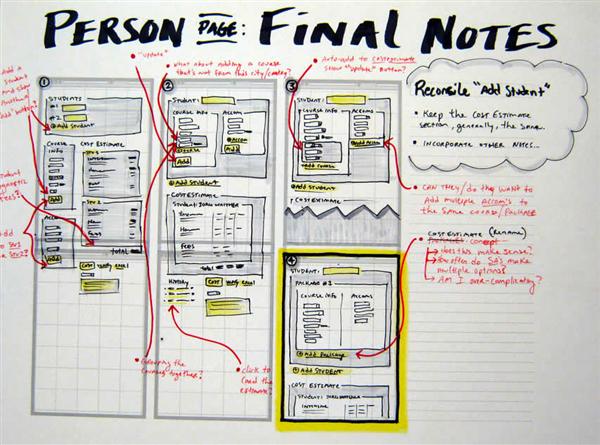 PERSON PAGE: FINAL NOTES
"update"
What about adding a course
that's not from this city/country?
Auto-add to cost estimate
show "update" button?
Add a
Student
and show
another
"add" button?
1
STUDENTS
#1
#2
Add Student
Course
Info
Cost Estimate
Stu 1
Stu 2
Add
Accom
Add
Total
Cost
Verify Email
Add
to Stu
Stu 2?
Grouping the
courses together?
2
Student:
Course Info
Accom
Accom
Add
Course
Add
Add Student
Cost Estimate
Fees
Total
History
Cost
Verify Email
click to
load the
estimate?
3
Student:
Course Info
Accoms
Add Accom
Add Course
Add Student
Cost Estimate
4
Student:
Package #1
Course Info
Accoms
Add Package
Add Student
Cost Estimate
Reconsile "Add Student"
Keep the Cost Estimate
section, generally, the same.
Incorporate other notes...
Can they/do they want to
add multiple Accom's to
the same course/package
Cost Estimate (rename)
concept
Does this make sense?
How often do SA's make
multiple options?
Am I over-complicating?